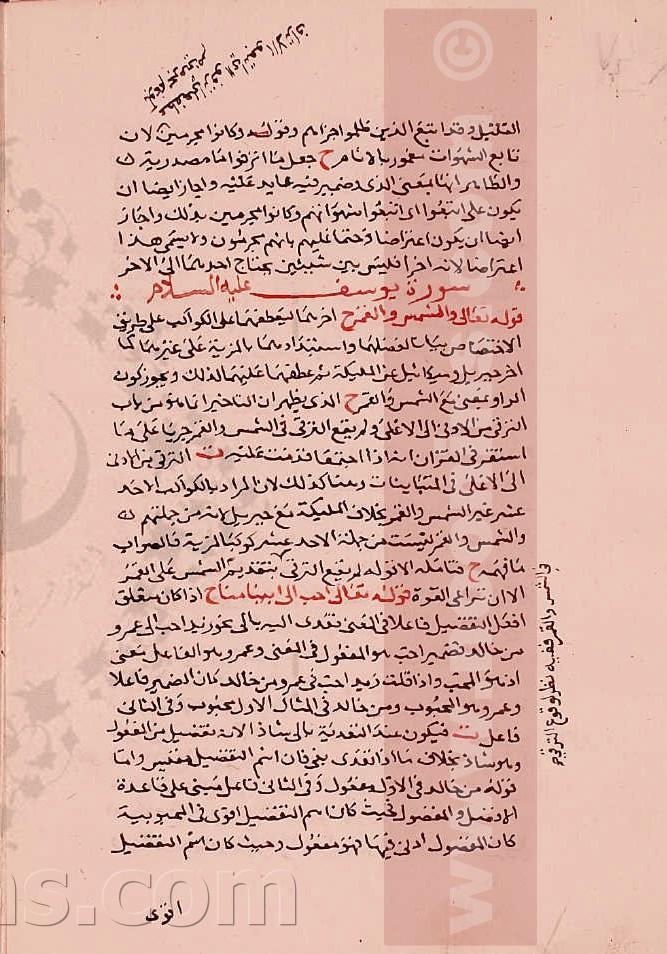 القليل وقد اتبع الذين ظلموا جزاءهم وقوله وكانوا مجرمين لان
تابع الشهوات مغمور بالاثام ح جعل ما اترفوا مصدرية
والظاهر انها بمعنى الذى وضمير فيه عايد عليه واجاز ايضا ان
يكون على اتبعوا اى اتبعوا شهواتهم وكانوا مجرمين بذلك واجاز
ايضا ان يكون اعتراضا وحكما عليهم بانهم مجرمون ولا يسمى هذا
اعتراضا لانه اخر اذ ليس بين شيئين يحتاج احدهما الى الاخر
سورة يوسف عليه السلام
قوله تعالى والشمس والقمر ح اخرهما ليعطفهما على الكواكب على طريق
الاختصاص بيانا لفضلهما واستبدادهما بالمزية على غيرهما كما
اخر جبريل وميكائيل عن الملائكة ثم عطفهما عليهما لذلك ويجوز كون
الواو بمعنى مع الشمس والقمر ح الذى يظهر ان التاخير انما هو من باب
الترقى من الادنى الى الاعلى ولم يقع الترقى فى الشمس والقمر جريا على ما
استقر فى القران اذا اجتمعا قدمت عليه ت الترقى من الادنى
الى الاعلى فى المتباينات وهنا كذلك لان المراد بالكواكب الاحد
عشر غير الشمس والقمر بخلاف الملائكة مع جبريل لانه من جملتهم
والشمس والقمر ليست من جملة الاحد عشر كوكبا بالمزية فالصواب
ما فهمه ح فتامله الا قوله لم يقع الترقى بتقديم الشمس على القمر
الا ان تراعى القوة قوله تعالى احب الى ابينا منا ح اذا كان متعلق
افعل التفضيل فاعلا فى المعنى تعدى اليه بالى نحو زيد احب الى عمرو
من خالد فضمير احب هو المفعول فى المعنى وعمرو هو الفاعل معنى
اذ هو المحب واذا قلت زيد احب فى عمرو من خالد كان الضمير فاعلا
وعمرو هو المحبوب ومن خالد فى المثال الاول محبوب وفى الثانى
فاعل ت فيكون عند التعدية بالى شاذا لانه تفضيل من المفعول
وهو شاذ بخلاف ما اذا تعدى بفى فان اسم التفضيل مقيس واما
قوله من خالد فى الاول مفعول وفى الثانى فاعل مبنى على قاعدة
الافضل والمفضول فحيث كان اسم التفضيل اقوى فى المحبوبية
كان المفضول ادنى فيها فهو مفعول وحيث كان اسم التفضيل
اقوى
فى الشمس والقمر ففيه نظر لوقوع الترقى
ns.com
www